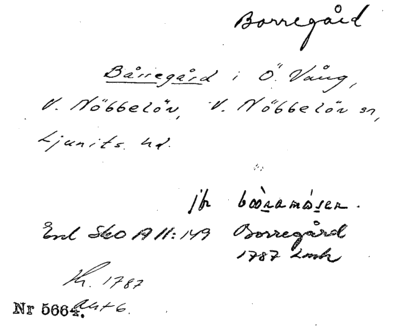 Borregård
Bårregård i Ö. Vång,
V. Nöbbelöv, V. Nöbbelöv sn,
Ljunits hd.
jfr bòramósen.
Enl Sko A II:149 Borregård
1787 Lmh
Hr. 1787
Akt 6.
Nr 5664.